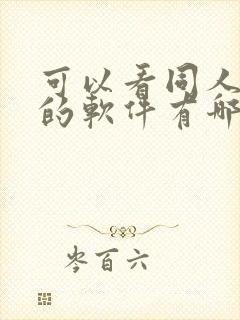 可以看同人
的軟件有哪
岑百六